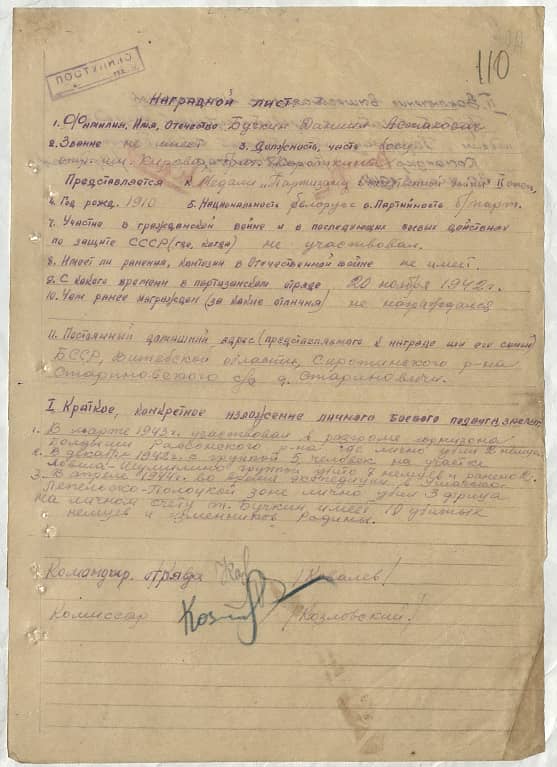 110
ПОСТУПИЛО
Наградной лист
1. Фамилия, Имя, Отчество Бучкин Даниил
2. Звание не имеет 3. Должность, часть
им. Кирова
Представляется к Медали „Партизану Отечественной войны" II степ.
4. Год рожд. 1910 5. Национальность белорус 6. Партийность б/парт.
7. Участие в гражданской войне и в последующих боевых действиях
по защите СССР (где, когда) не участвовал.
8. Имеет ли ранения, контузии в Отечественной войне не имеет.
9. С какого времени в партизанском отряде, 20 ноября 1942 г.
10. Чем ранее награжден (за какие отличия) не награждался
11. Постоянный домашний адрес (представляемого к награде или его семьи)
БССР, Витебской области, Сиротинского р-на
Стариновского с/с д. Стариновичи.
I. Краткое, конкретное изложение личного боевого подвига,
1. В марте 1943 г. участвовал в разгроме гарнизона
р-на где лично убил 2 немцев.
2. В декабре 1942 г. с группой 5 человек на участке
группой убито немцев и ранено 2.
3. В апреле 1944 г. во время экспедиции
Лепельско-Полоцкой зоне лично убил 3 фрица
На личном счету т. Бучкин имеет 10 убитых
немцев и изменников Родины.
Командир отряда /Ковалев/
Комиссар /Козловский/